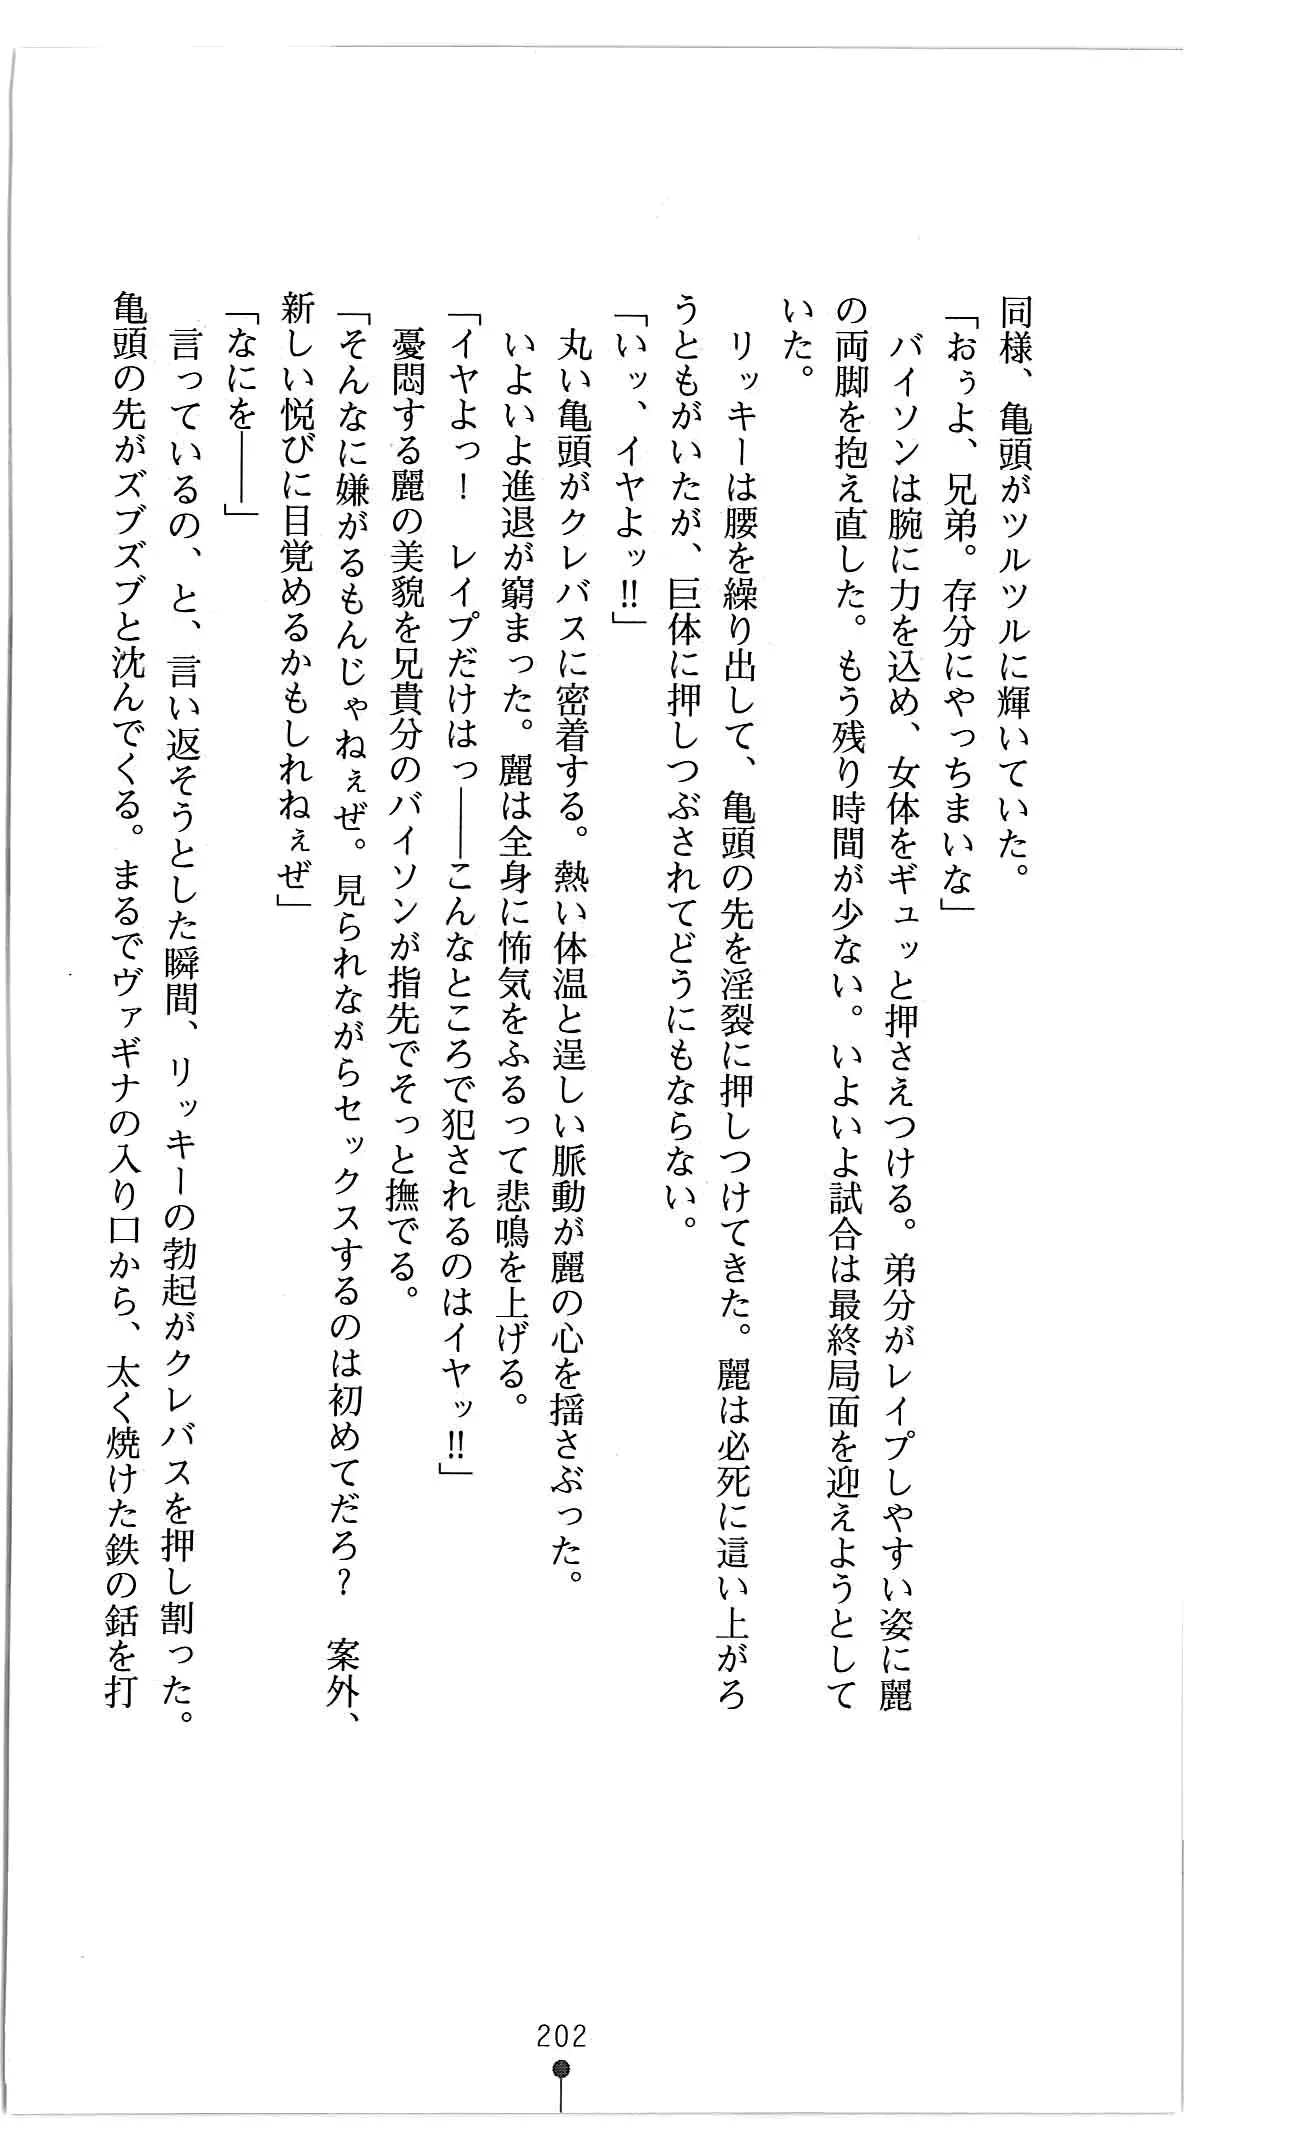 同様、亀頭がツルツルに輝いていた。
「おぅよ、兄弟。存分にやっちまいな」
バイソンは腕に力を込め、女体をギュッと押さえつける。弟分がレイプしやすい姿に麗
の両脚を抱え直した。もう残り時間が少ない。いよいよ試合は最終局面を迎えようとして
いた。
リッキーは腰を繰り出して、亀頭の先を淫裂に押しつけてきた。麗は必死に這い上がろ
うともがいたが、巨体に押しつぶされてどうにもならない。
「いッ、イヤよッ!!」
丸い亀頭がクレバスに密着する。熱い体温と逞しい脈動が麗の心を揺さぶった。
いよいよ進退が窮まった。麗は全身に怖気をふるって悲鳴を上げる。
「イヤよっ！　レイプだけはっ――こんなところで犯されるのはイヤッ!!」
憂悶する麗の美貌を兄貴分のバイソンが指先でそっと撫でる。
「そんなに嫌がるもんじゃねぇぜ。見られながらセックスするのは初めてだろ？　案外、
新しい悦びに目覚めるかもしれねぇぜ」
「なにを――」
言っているの、と、言い返そうとした瞬間、リッキーの勃起がクレバスを押し割った。
亀頭の先がズブズブと沈んでくる。まるでヴァギナの入り口から、太く焼けた鉄の銛を打
202